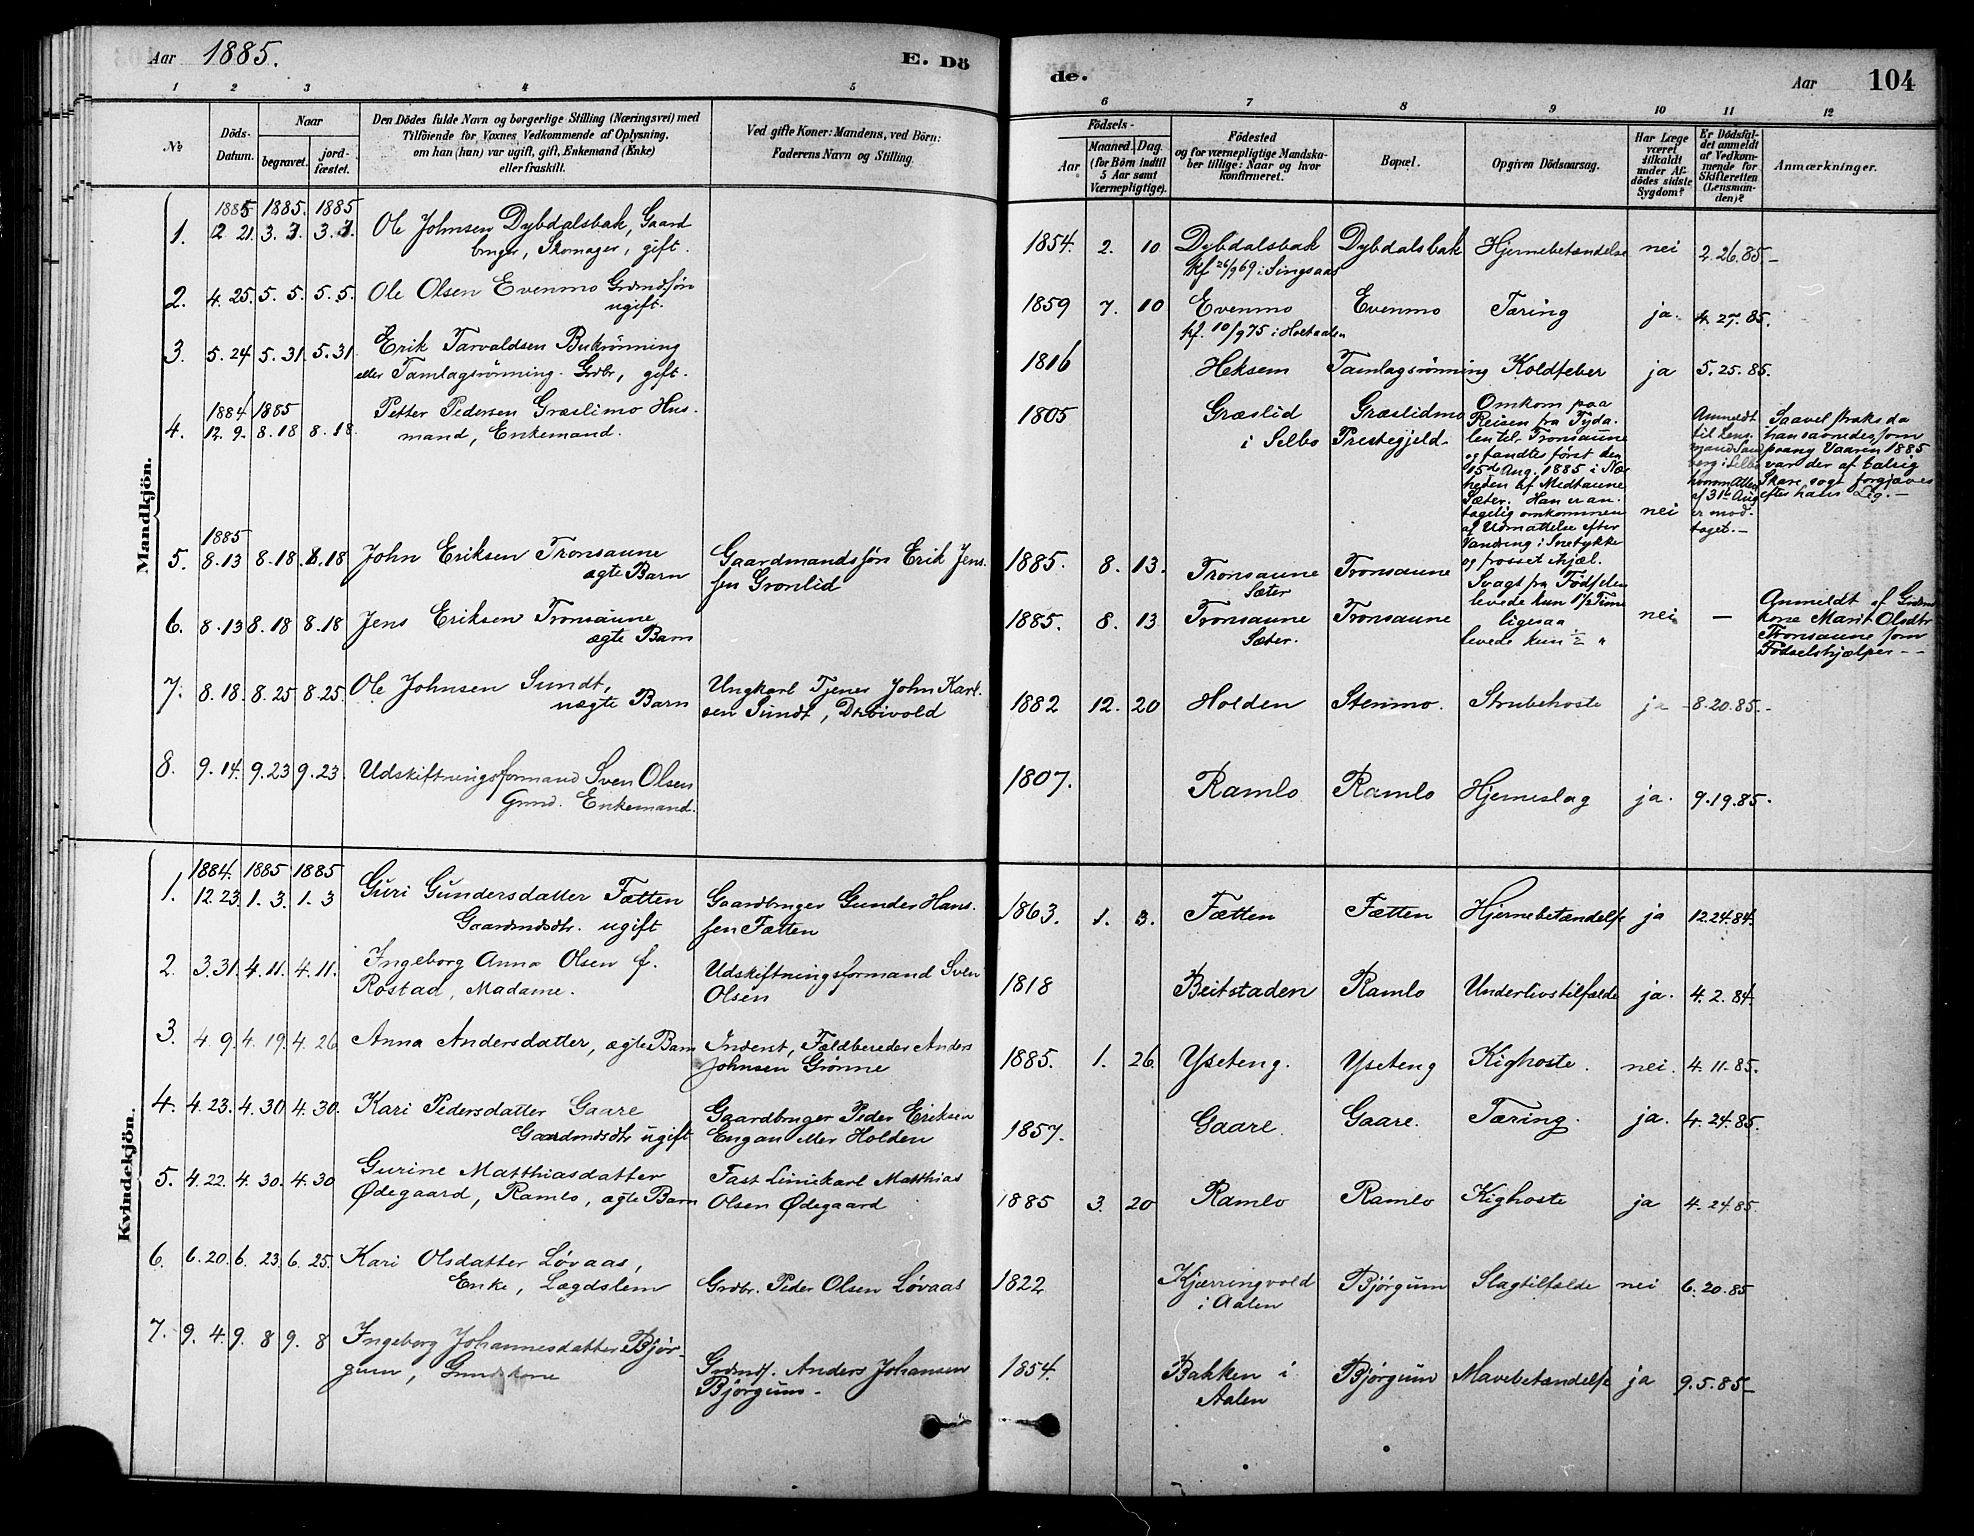 Aar 1885.
E. Dö
1 2 3 4 5
№
Döds-
Datum.
Naar
begravet.
jord-
fæstet.
Den Dödes fulde Navn og borgerlige Stilling (Næringsvei) med
Tilföiende for Voxnes Vedkommende af Oplysning,
om han (hun) var ugift, gift, Enkemand (Enke)
eller fraskilt.
Ved gifte Koner: Mandens, ved Börn:
Faderens Navn og Stilling.
Mandkjön.
1885 1885. 1885
1. 2 21. 3. 7. 3. 7. Ole Johnsen Dybdalsbak, Gaard
bruger, Skomager, gift.
2. 4. 25. 5. 5. 5. 5. Ole Olsen Evenmo Grdmdssøn
ugift.
3. 5. 24 5. 31. 5. 31. Erik Tarvaldsen Bukrönning
eller Tamlagsrönning. Grdbr, gift.
1884/1885
4. 12. 9. 8. 18 8. 18. Petter Pedersen Græslimo Hus-
mand, Enkemand.
1885
5. 8. 13 8. 18 8. 18 John Eriksen Tronsaune
ægte Barn
Gaardmandsføn Erik Jens
sen Grønlid
6. 8. 13 8. 18 8. 18 Jens Eriksen Tronsaune
ægte Barn
7. 8. 18. 8. 25 8. 25. Ole Johnsen Sundt,
uægte Barn
Ungkarl Tjener John Karl-
sen Sundt, Drøivold
8. 9. 14. 9. 23 9. 23. Udskiftningsformand Sven Olsen
Grmd. Enkemand.
Kvindekjön.
1884. 1885 1885
1. 12 23. 1. 3. 1. 3 Guri Gundersdatter Fætten
Gaardmdsdtr. ugift
Gaardbruger Gunder Hans-
sen Fætten
2. 3. 31. 4. 11. 4. 11. Ingeborg Anna Olsen f.
Rostad, Madame.
Udskiftningsformand Sven
Olsen
3. 4. 9. 4. 19. 4. 26 Anna Andersdatter, ægte Barn
Inderst, Fældbereder Anders
Johnsen Grönne
4. 4. 23. 4. 30 4. 30. Kari Pedersdatter Gaare
Gaardmdsdtr ugift
Gaardbruger Peder Eriksen
Engan eller Holden
5. 4. 22. 4. 30. 4. 30 Gurine Matthiasdatter
Ødegaard, Ramlo, ægte Barn
Fast Liniekarl Matthias
Olsen Ødegaard
6. 6. 20. 6. 23. 6. 25. Kari Olsdatter Løvaas,
Enke, Lægdslem
Grdbr. Peder Olsen Løvaas
7. 9. 4. 9. 8 9. 8 Ingeborg Johannesdatter Bjør-
gum,
Grdmd. Anders Johansen
Bjørgum.
de.
Aar 104
6 7 8 9 10 11 12
Födsels-
Aar
Maaned. Dag.
(for Börn indtil
5 Aar samt
Værnepligtige).
Födested
og for værnepligtige Mandska-
ber tillige: Naar og hvor
konfirmeret.
Bopæl.
Opgiven Dödsaarsag.
Har Læge
været
tilkaldt
under Af-
dödes sidste
Sygdom?
Er Dödsfal-
det anmeldt
af Vedkom-
mende for
Skifteretten
(Lensman-
den)?
Anmærkninger.
1854. 2. 10 Dybdalsbak Dybdalsbak Hjernebetændelse nei 2. 26. 85.
kf 26/9 69 i Singsaas
1859 7. 10 Evenmo Evenmo Tæring ja. 4. 27. 85.
kf. 10/9 75 i Holtaalen
1816 Heksem Tamlagsrønning Koldfeber ja 5. 25. 85.
1805 Græslid
i Selbo
Græslidmo
Prestegjeld
Omkom paa
Reisen fra Tyda-
len til Tronsaune
og fandtes först den
15de Aug. 1885 i Næ-
heden af Midtaune
Sæter. Han er an-
tagelig omkommen
af Udmattelse efter
Vandring i Snetykke
og frosset ihjæl.
nei
Anmeldt
til Lens-
mand Sand
berg i Selbo
hvorom Attest
af 31te Aug
er mod-
taget.
Saavel straks da
han savnedes som
paany Vaaren 1885
var der af talrig
Skare søgt forgjæves
efter hans Lig.
1885. 8. 13. Tronsaune
Sæter
Tronsaune
Svagt fra Födselen
levede kun 1 1/2 Time
1885. 8. 13 Tronsaune
Sæter.
Tronsaune
ligesaa
levede kun 1/2 "
nei —
Anmeldt af Grdmd
kone Marit Olsdtr
Tronsaune som
Födselshjælper
1882 12. 20 Holden Stenmo. Strubehoste ja 8. 20. 85.
1807. Ramlo Ramlo Hjerneslag ja. 9. 19. 85.
1863. 1. 3. Fætten Fætten Hjernebetændelse ja 12. 24. 84.
1818 Beitstaden Ramlo Underlivstilfælde ja. 4. 2. 84.
1885. 1. 26. Yseteng. Yseteng Kighoste. nei. 4. 11. 85.
1857. Gaare. Gaare. Tæring. ja. 4. 24. 85.
1885 3. 20 Ramlo Ramlo Kighoste ja 4. 24. 85.
1822 Kjærringvold
i Aalen
Bjørgum Slagtilfælde nei 6. 20. 85
1854. Bakken i
Aalen
Bjørgum Mavebetændelse ja 9. 5. 85